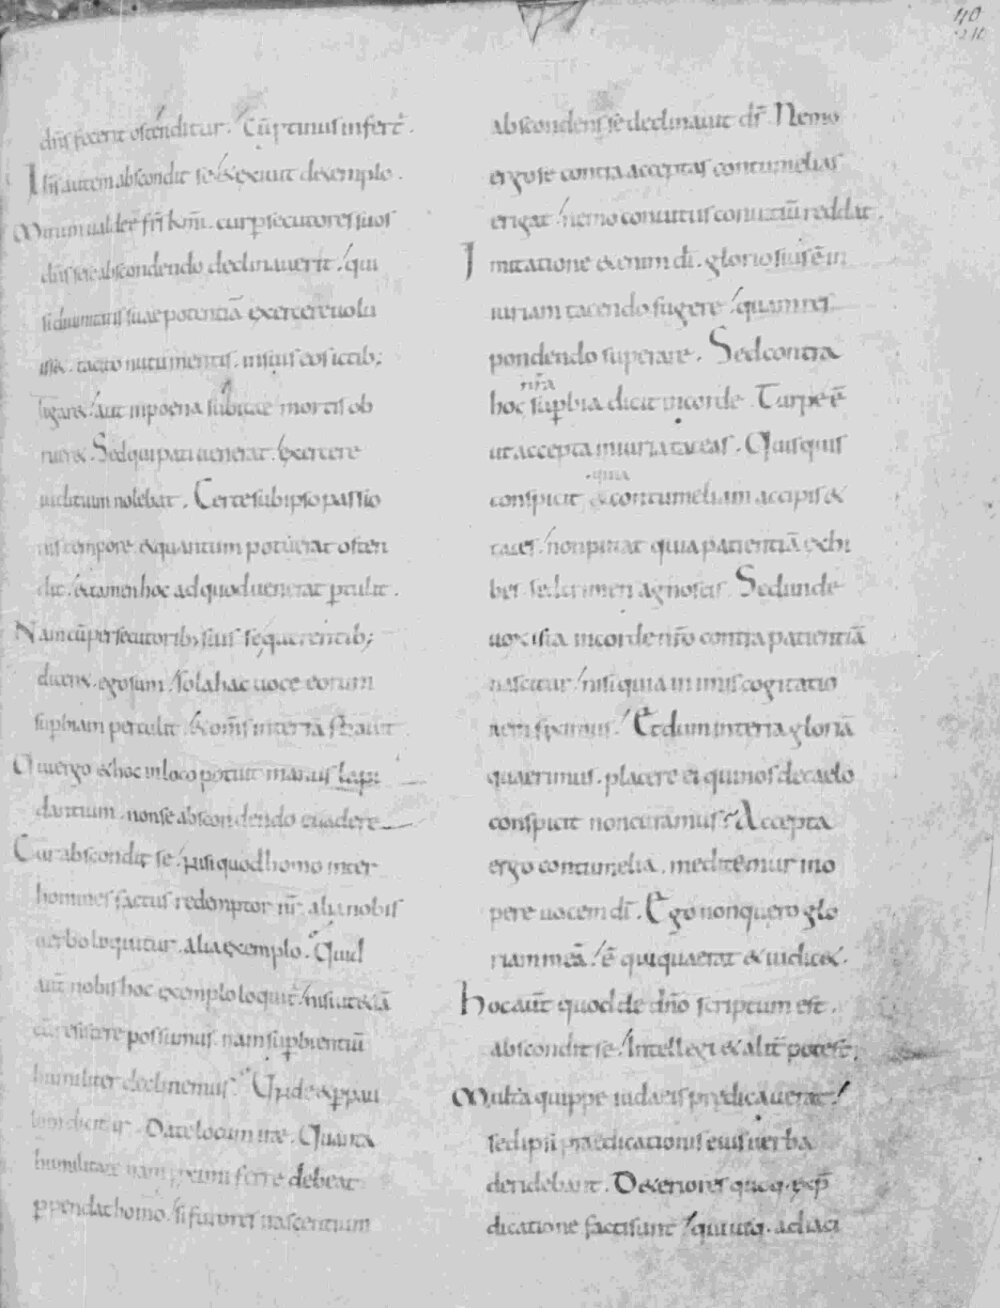 40
dn̄s fecerit ostenditur. Cū ꝓtinus infert̄.
Ihs̄ autem abscondit se & exiuit de templo.
Mirum ualde ē fr̄s km̄i. cur ꝑsecutores suos
dn̄s se abscondendo declinauerit. qui
si diuinitatis suae potentiā exercere uolu
iss&. tacito nutu mentis. in suis eos ictib;
ligar&. aut in poena subitae mortis ob
ruer&. Sed qui pati uenerat. exercere
iuditium nolebat. Certe sub ipso passio
nis tempore. & quantum poterat osten
dit. & tamen hoc ad quod uenerat ꝑtulit.
Nam cū persecutorib; suis se querentib;
dicer&. ego sum. sola hac uoce eorum
suꝑbiam perculit. & om̄s in terrā strauit
Qui ergo & hoc in loco potuit manus lapi
dantium. non se abscondendo euadere
Cur abscondit se. nisi quod homo inter
homines factus redemptor nr̄. alia nobis
uerbo loquitur. alia exemplo. Quid
aūt nobis hoc exemplo loquit̄. nisi ut etiā
cū resistere possumus. iram suꝑbientiū
humiliter declinemus. Unde & ꝑ pau
lum dicitur. Date locum irae. Quanta
humilitate iram proximi ferre debeat
ꝑpendat homo. si furores irascentium
abscondens se declinauit ds̄. Nemo
ergo se contra acceptas contumelias
erigat. nemo conuitus conuitiū reddat.
Imitatione & enim dī. gloriosius ē in
iuriam tacendo fugere. quam res
pondendo superare. Sed contra
nr̄a
hoc suꝑbia dicit in corde. Turpe ē
ut accepta iniuria taceas. Quisquis
quia
conspicit & contumeliam accipis &
taces. non putat quia patientiā exhi
bes sed crimen agnoscis. Sed unde
uox ista in corde nr̄o contra patientiā
nascitur. nisi quia in imis cogitatio
nem fiximus. Et dum in terra gloriā
quaerimus. placere ei qui nos de caelo
conspicit non curamus. Accepta
ergo contumelia. meditemur in o
pere uocem dī. Ego non quero glo
riam meā. ē qui quaerat & iudic&.
Hoc aūt quod de dn̄o scriptum est.
abscondit se. Intellegi & alit̄ potest.
Multa quippe iudaeis predicauerat.
sed ipsi praedicationis eius uerba
deridebant. Deteriores quoq. ex p̄
dicatione facti sunt. qui usq. ad iaci